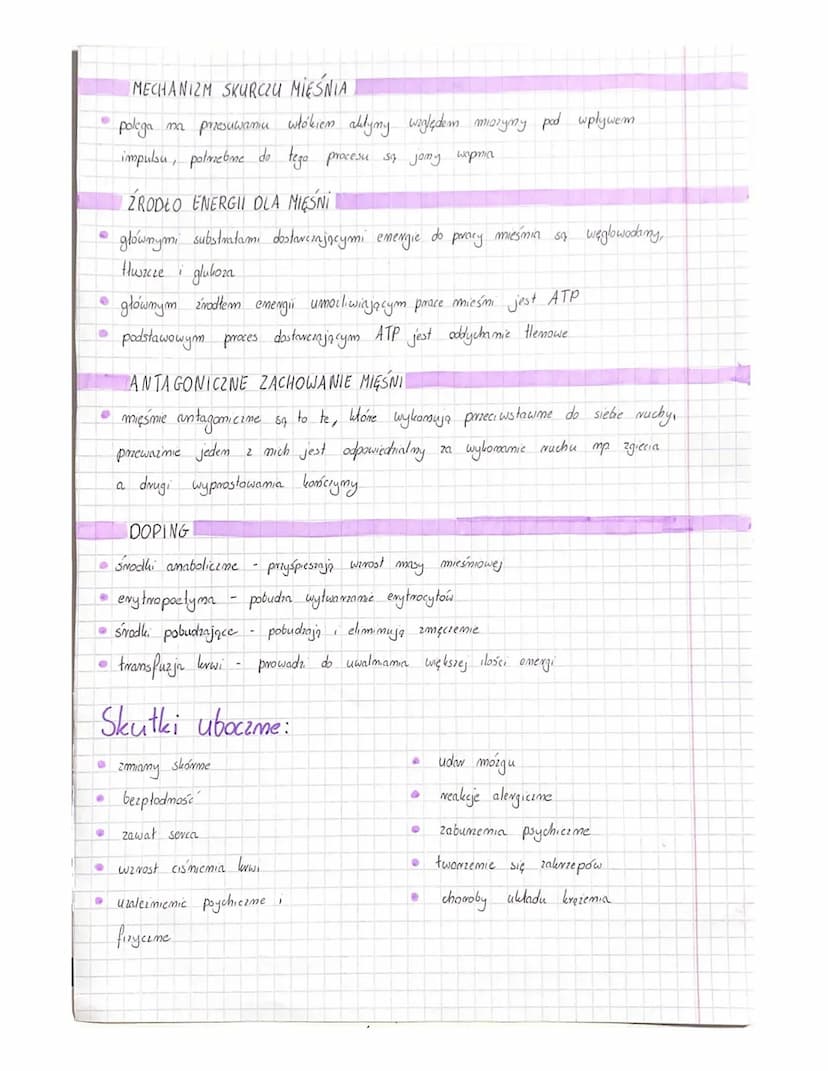 MECHANIZM SKURCZU MIĘŚNIA
polega na przesuwaniu włókien aktyny względem miozyny pod wpływem
impulsu, potrzebne do tego procesu są jony wapnia
ŹRÓDŁO ENERGII DLA MIĘŚNI
głównymi substratami dostarczającymi energie do pracy mieśnia są węglowodany,
tłuszcze i glukoza
głównym źródłem energii umożliwiającym prace mieśni jest ATP
podstawowym proces dostarczającym ATP jest oddychanie tlenowe
ANTAGONICZNE ZACHOWANIE MIĘŚNI
mięśnie antagoniczne są to te, które wykonują przeciwstawne do siebie ruchy,
przeważnie jeden z nich jest odpowiedzialny za wykonanie ruchu np zgięcia
a drugi wyprostowania kończyny
DOPING
środki anaboliczne - przyśpieszają wzrost masy mieśniowej
erytropoetyna - pobudza wytwarzanie erytrocytów
środki pobudzające - pobudzają i eliminują zmęczenie
transfuzja krwi - prowadzi do uwalniania większej ilości energi
Skutki uboczne:
zmiany skórne
bezpłodność
zawał serca
wzrost ciśnienia krwi
uzależnienie psychiczne i
fizyczne
udar mózgu
reakcje alergiczne
zaburzenia psychiczne
tworzenie się zakrzepów
choroby układu krążenia